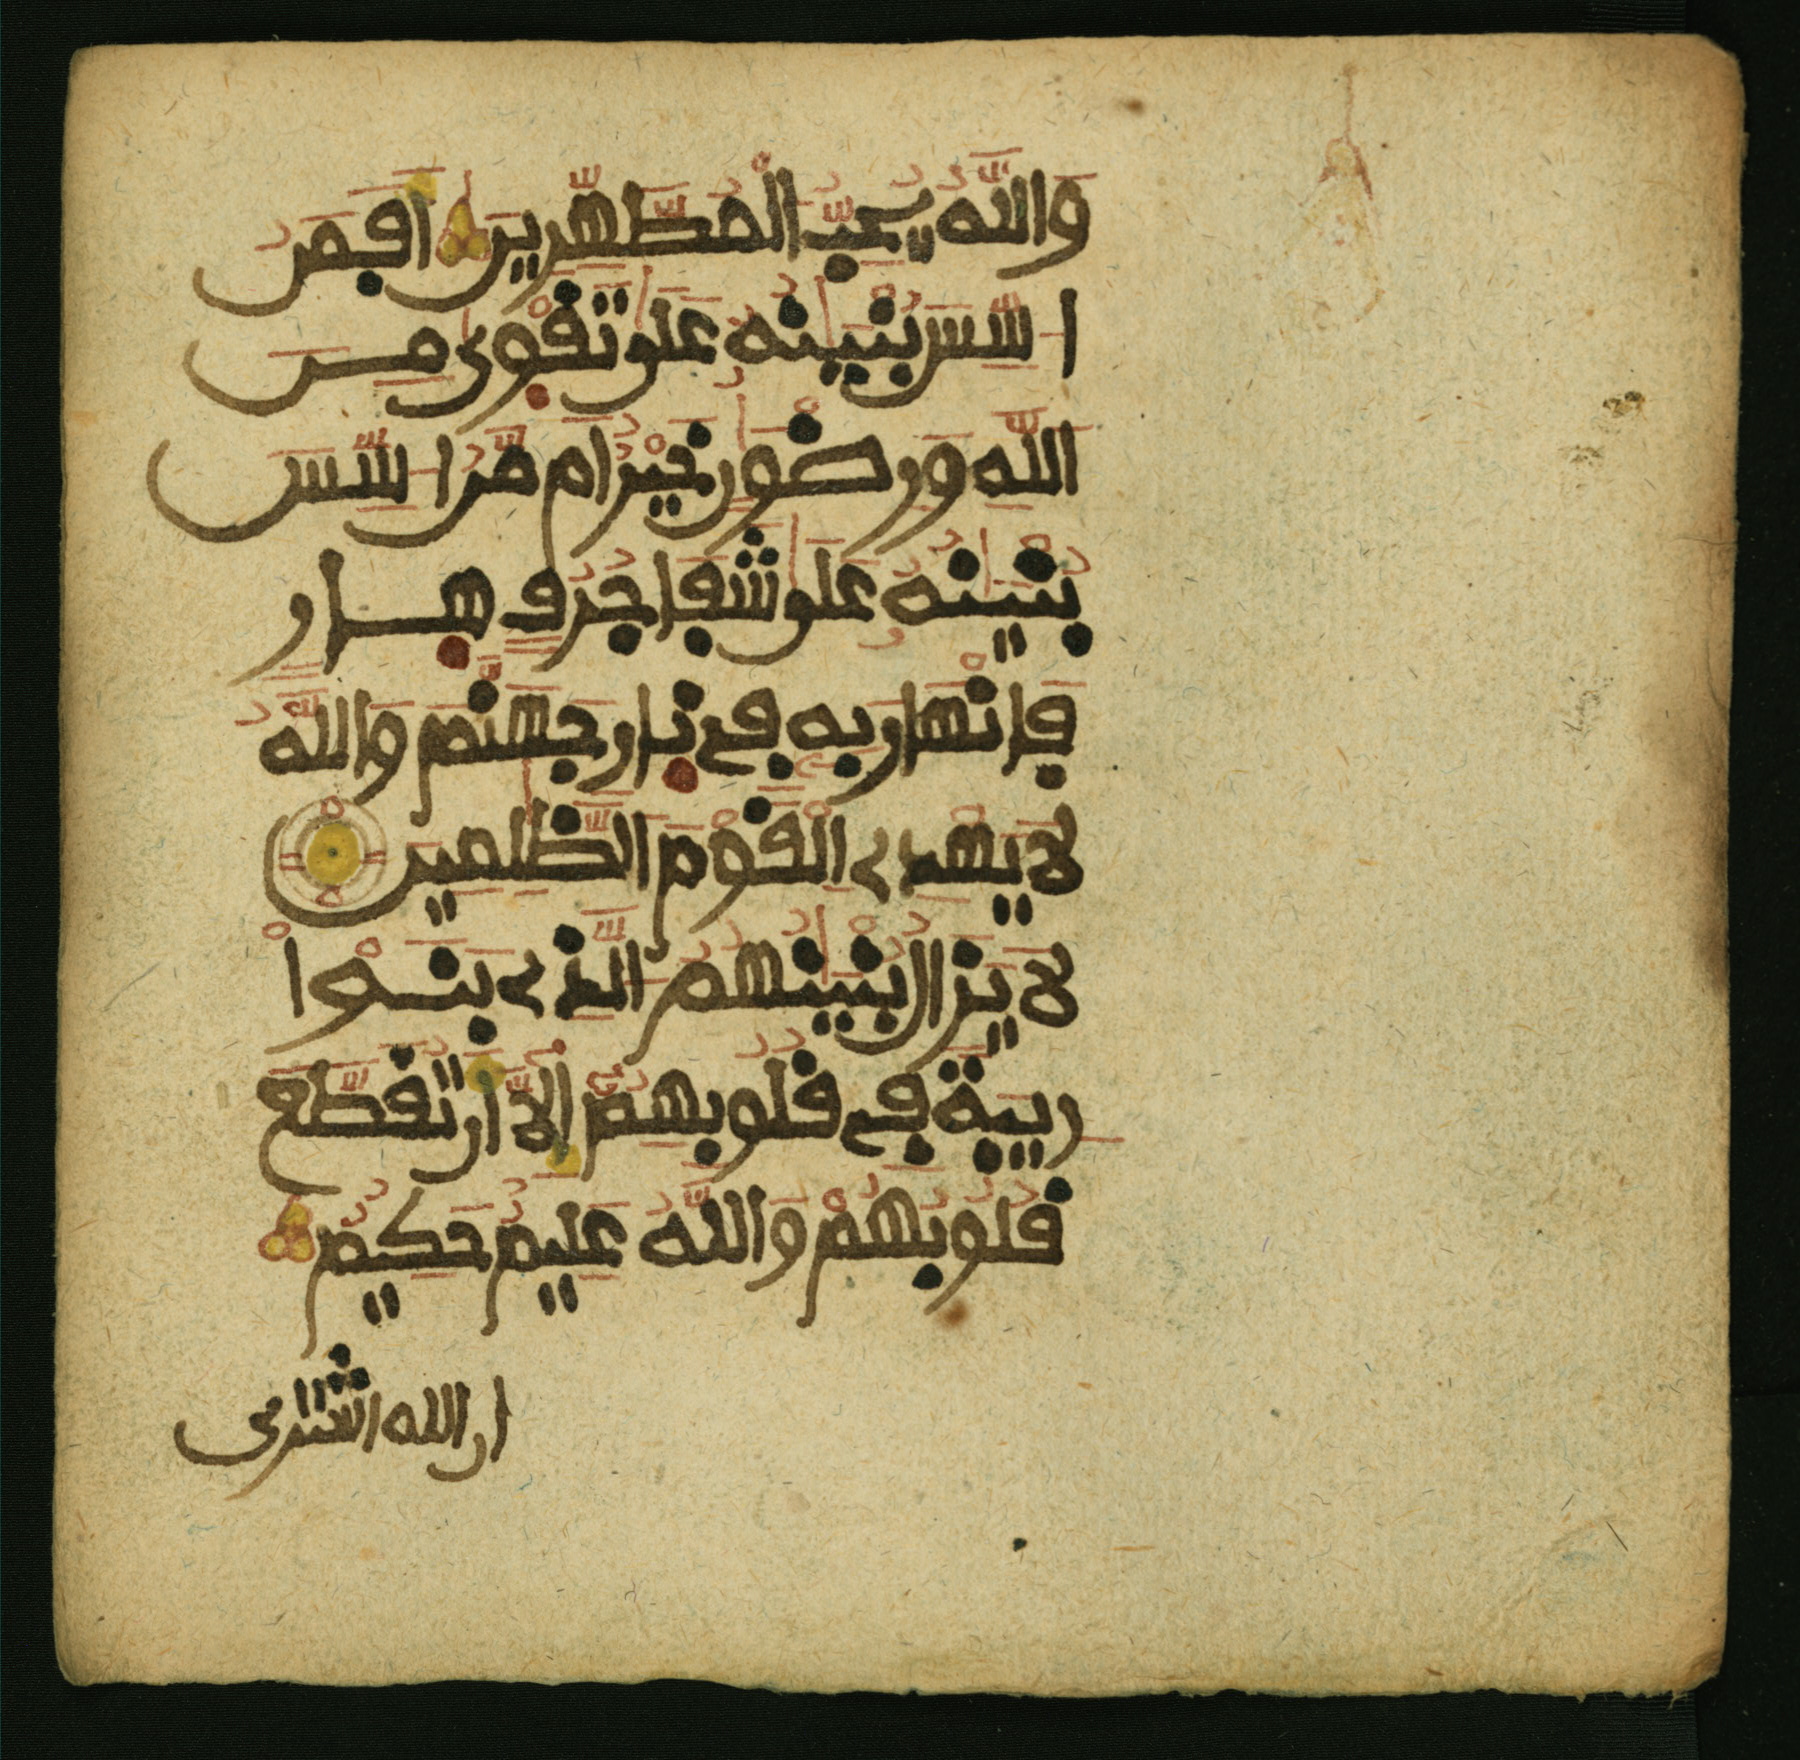 وَاللَّهُ يُحِبُّ الْمُطَّهِّرِينَ أَفَمَنُ
اسِّسَ بُنْيَٰنُهُ عَلَىٰ تَقْوَىٰ مِنَ
اللَّهِ وَرِضْوَٰنٍ خَيْرٌ أَم مَّنُ اسِّسَ
بُنْيَٰنُهُ عَلَىٰ شَفَا جُرُفٍ هَارٍ
فَانْهَارَ بِهِ فِي نَارِ جَهَنَّمَ وَاللَّهُ
لَا يَهْدِي الْقَوْمَ الظَّٰلِمِينَ
لَا يَزَالُ بُنْيَٰنُهُمُ الَّذِي بَنَوْا
رِيبَةً فِي قُلُوبِهِمُ إِلَّا أَن تُقَطَّعَ
قُلُوبُهُمْ وَاللَّهُ عَلِيمٌ حَكِيمٌ
ان الله اشترى